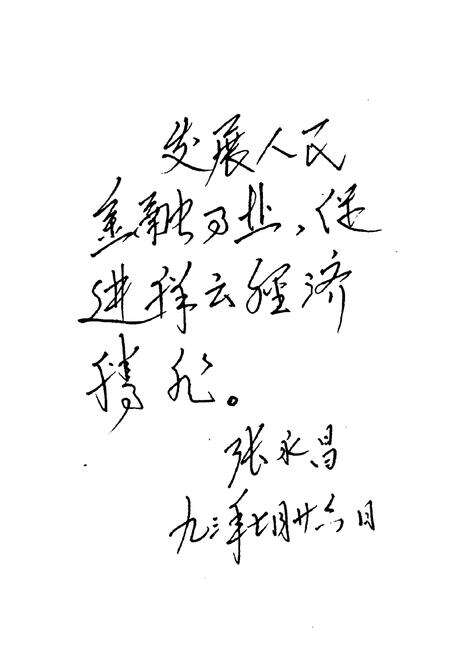 发展人民
金融事业，促
进祥云經济
腾飞。
张永昌
九三年七月廿六日